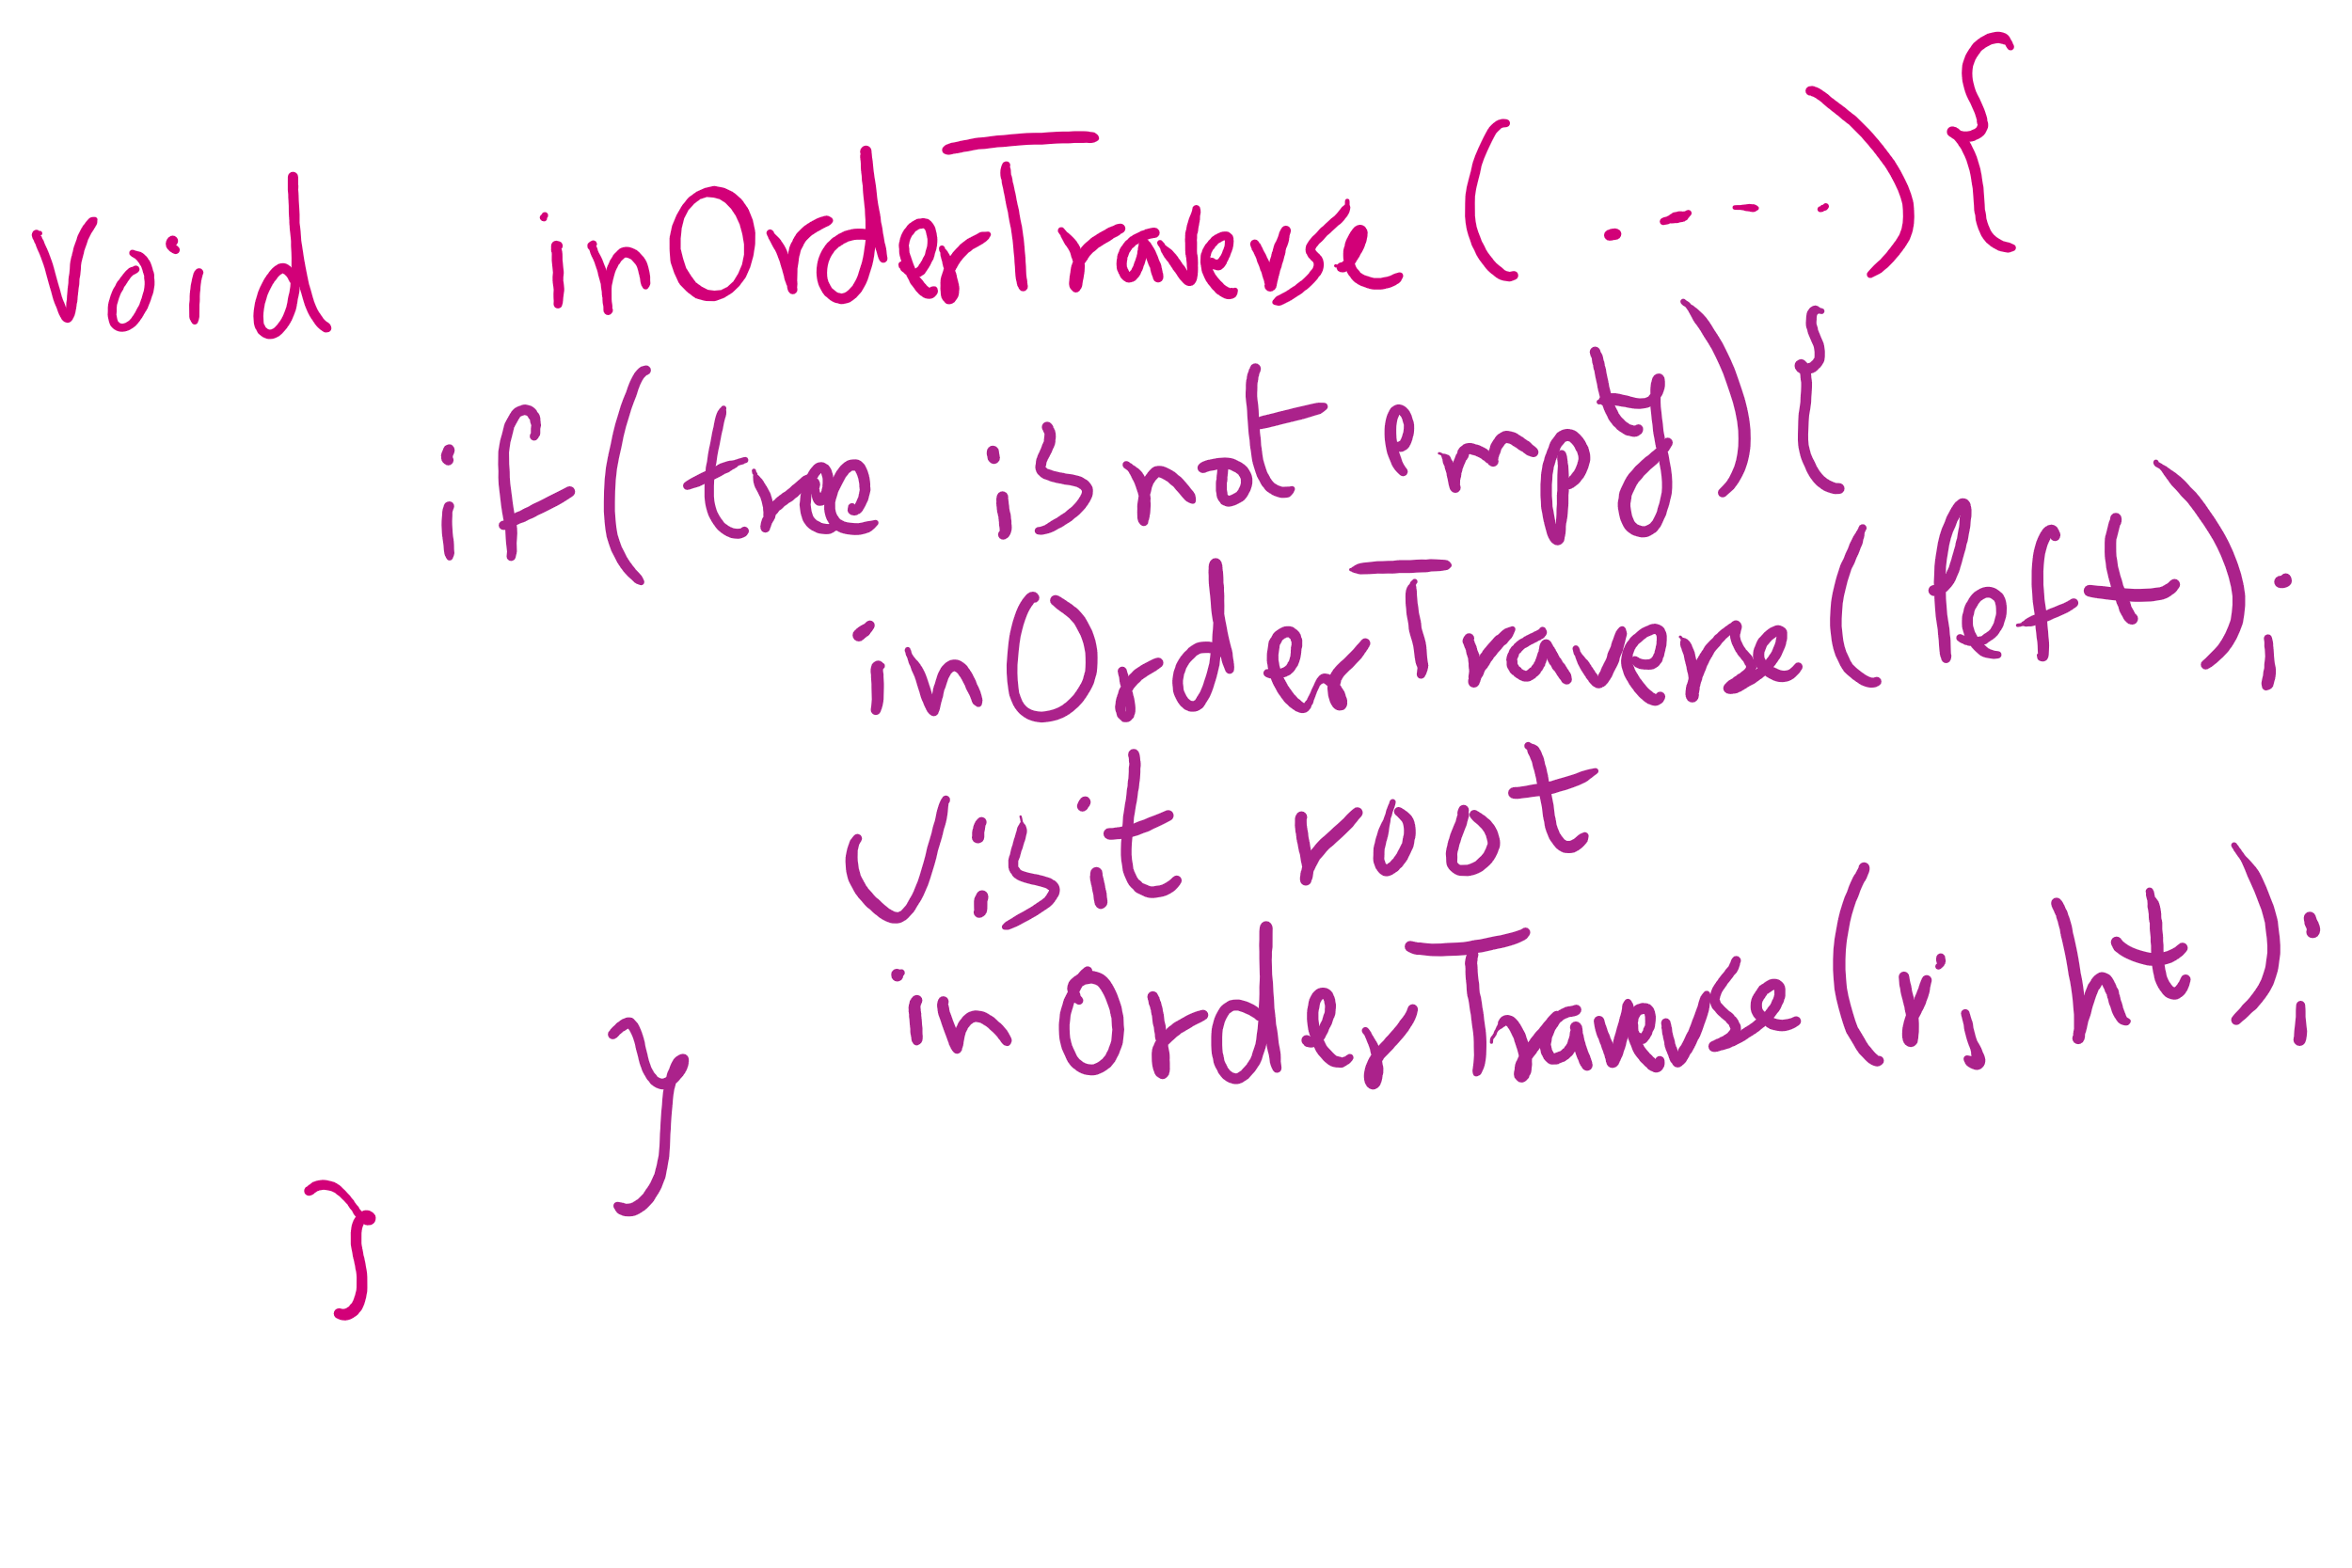 void inOrderTraverse (....) {
if (tree isnot empty) {
inOrderTraverse (left);
visit root
inOrderTraverse (right);
}
}